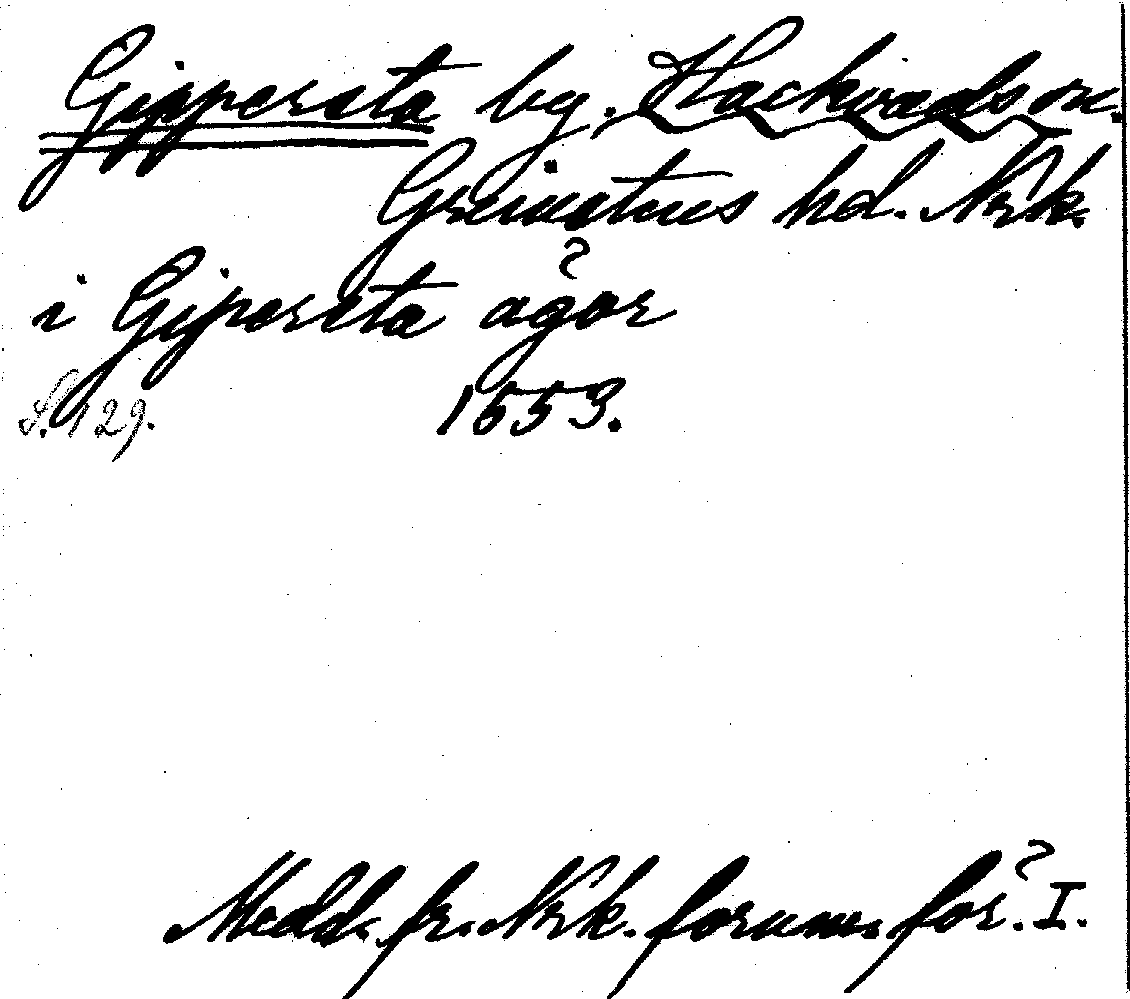 Gippersta by. Hackvads sn.
Greimstens hd. Nrk.
i Gipersta ägor
S. 129. 1553.
Medd. fr. Nrk. fornm. för. I.